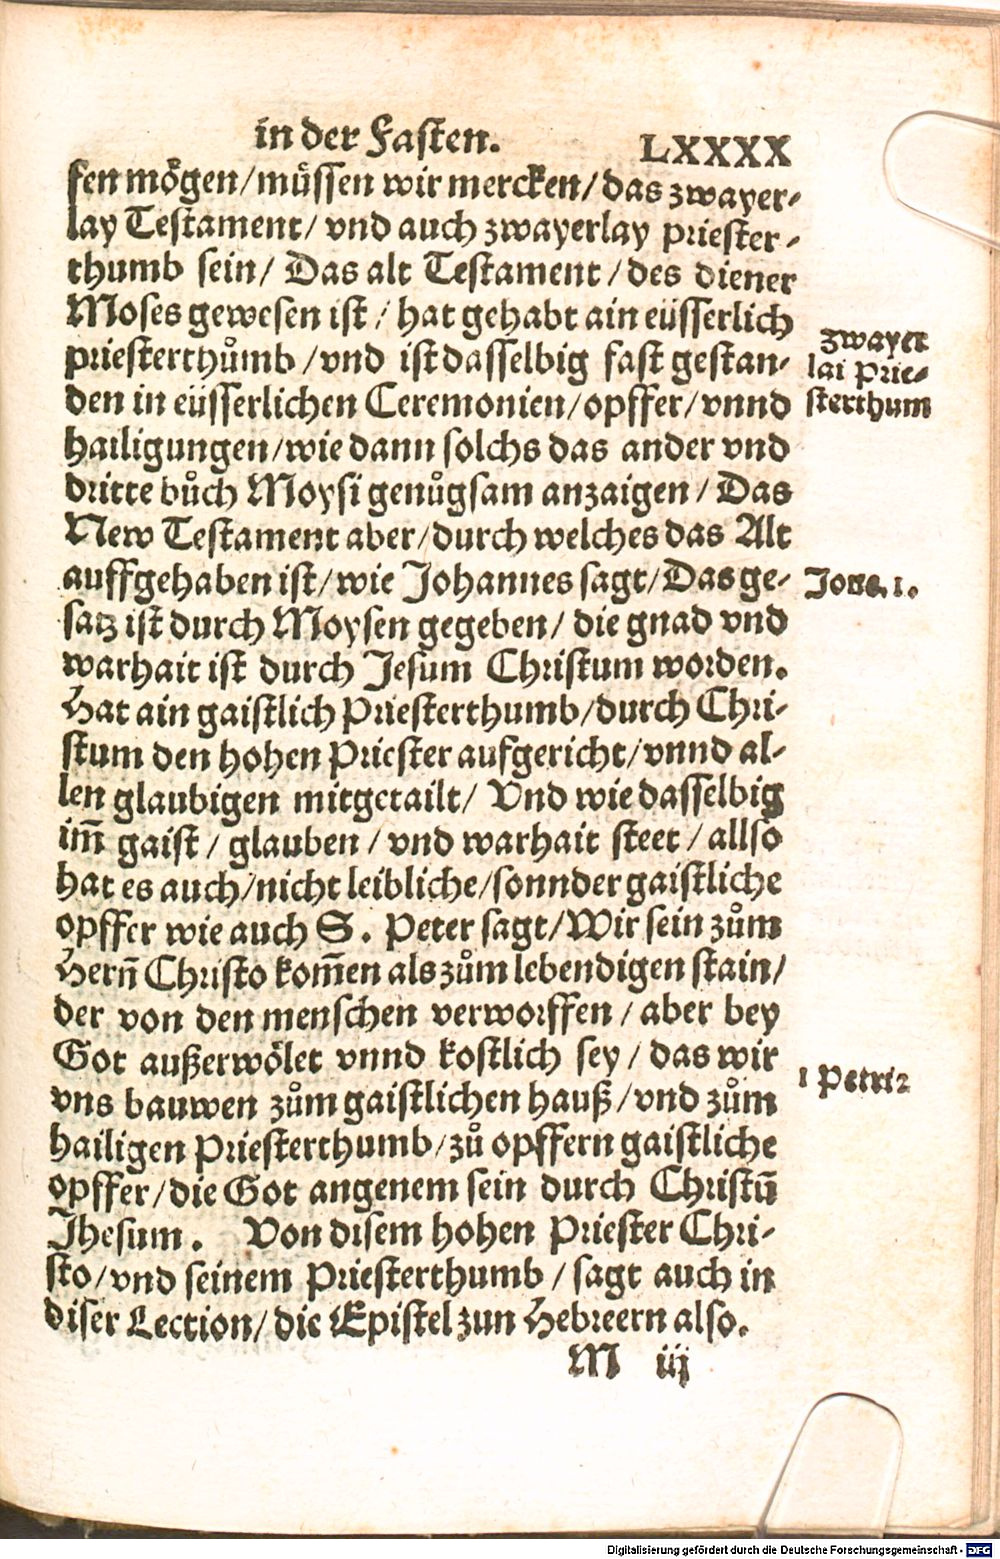 in der Fasten. LXXXX
fen mögen/müssen wir mercken/das zwayer-
lay Testament/ vnd auch zwayerlay priester-
thumb sein/ Das alt Testament/des diener
Moses gewesen ist/ hat gehabt ain eüsserlich
priesterthůmb/vnd ist dasselbig fast gestan-
den in eüsserlichen Ceremonien/opffer/vnnd
hailigungen/wie dann solchs das ander vnd
dritte bůch Moysi genůgsam anzaigen/ Das
New Testament aber/durch welches das Alt
auffgehaben ist/wie Johannes sagt/Das ge-
satz ist durch Moysen gegeben/ die gnad vnd
warhait ist durch Jesum Christum worden.
Hat ain gaistlich Priesterthumb/durch Chri-
stum den hohen Priester aufgericht/vnnd al-
len glaubigen mitgetailt/ Vnd wie dasselbig
im̃ gaist/ glauben/ vnd warhait steet/ allso
hat es auch/nicht leibliche/sonnder gaistliche
opffer wie auch S. Peter sagt/Wir sein zům
Herñ Christo kom̃en als zům lebendigen stain/
der von den menschen verworffen/ aber bey
Got außerwölet vnnd kostlich sey/ das wir
vns bauwen zům gaistlichen hauß/vnd zům
hailigen Priesterthumb/zů opffern gaistliche
opffer/die Got angenem sein durch Christũ
Jhesum. Von disem hohen Priester Chri-
sto/vnd seinem Priesterthumb/ sagt auch in
diser Lection/ die Epistel zun Hebreern also.
M iij
zwayer
lai Prie-
sterthum
1 Petri 2
Digitalisierung gefördert durch die Deutsche Forschungsgemeinschaft - DFG